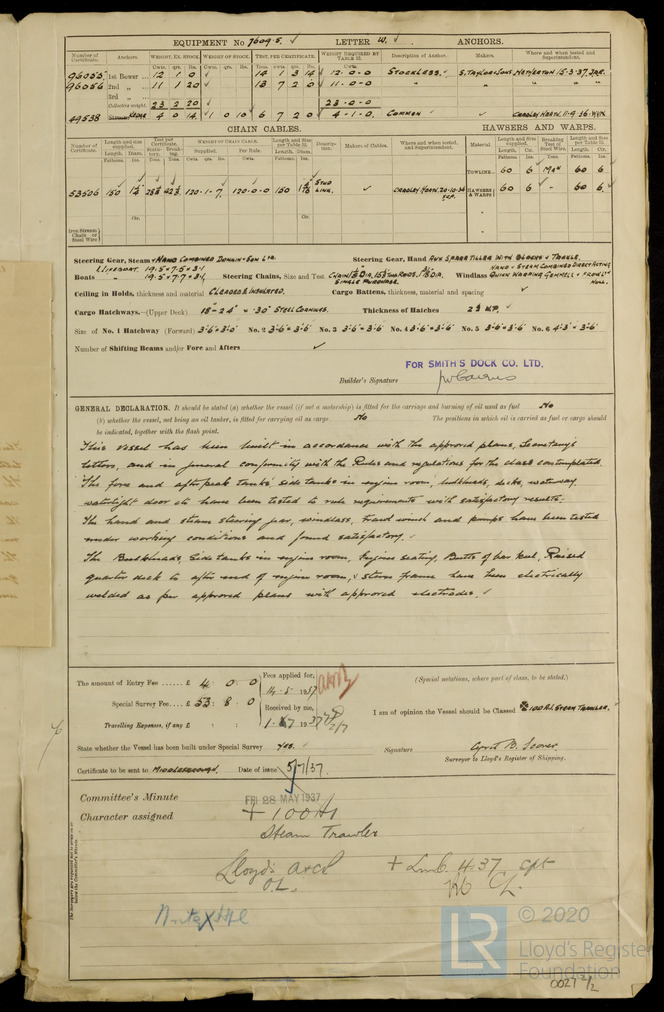 EQUIPMENT No 7609.5. LETTER W. ANCHORS.
Number of Certificate. Anchors. WEIGHT, EX. STOCK. WEIGHT OF STOCK. TEST, PER CERTIFICATE. WEIGHT REQUIRED BY TABLE 31. Description of Anchor. Makers. Where and when tested and Superintendent.
Cwts. qrs. lbs. Cwts. qrs. lbs. Tons. cwts. qrs. lbs. Cwts.
96055 1st Bower 12 1 0 14 1 3 14 12-0-0 STOCKLESS. S. TAYLOR & SONS NETHERTON 15-3-37.
96056 2nd " 11 1 20 13 7 2 0 11-0-0 " " "
3rd "
Collective weight. 23 2 20 23-0-0
49538 KEDGE 4 0 14 1 0 10 6 7 2 0 4-1-0. COMMON CRADLEY HEATH 11-9-36
CHAIN CABLES. HAWSERS AND WARPS.
Number of Certificate. Length and size supplied. Test per Certificate. WEIGHT OF CHAIN CABLE. Length and Size per Table 31. Description. Makers of Cables. Where and when tested, and Superintendent. Material Length and size supplied. Breaking Test of Steel Wire. Length and Size per Table 31.
Fathoms. Ins. Supplied. Per Rule. Fathoms. Ins. Fathoms. Ins. Tons. Fathoms. Ins.
TOWLINE 60 6 60 6
53506 150 120-1-7 120-0-0 150 STUD LINK. CRADLEY HEATH. 20-10-36 HAWSERS & WARPS 60 6 - 60 6
Iron Stream Chain or Steel Wire
Steering Gear, Steam & HAND COMBINED DONKIN & CO. LTD. Steering Gear, Hand AUX SPARE TILLER WITH BLOCKS & TACKLE.
Boats LIFEBOAT. 19.5 × 7.5 × 3.1 Steering Chains, Size and Test
" 19.5 × 7.7 × 3.1 SINGLE PURCHASE. Windlass HAND & STEAM COMBINED DIRECT ACTING
Ceiling in Holds, thickness and material CLEADED & INSULATED. Cargo Battens, thickness, material and spacing
Cargo Hatchways.—(Upper Deck) 18"-24" & 30" STEEL COAMINGS. Thickness of Hatches 2½ W.P.
Size of No. 1 Hatchway (Forward) 3'-6" × 3'-0" No. 2 3'-6" × 3'-6" No. 3 3'-6" × 3'-6" No. 4 3'-6" × 3'-6" No. 5 3'-6" × 3'-6" No. 6 4'-3" × 3'-6"
Number of Shifting Beams and/or Fore and Afters
FOR SMITH'S DOCK CO. LTD.
Builder's Signature
GENERAL DECLARATION. It should be stated (a) whether the vessel (if not a motorship) is fitted for the carriage and burning of oil used as fuel No
(b) whether the vessel, not being an oil tanker, is fitted for carrying oil as cargo No The positions in which oil is carried as fuel or cargo should
be indicated, together with the flash point.
This vessel has been built in accordance with the approved plans, Secretary's
letters, and in general conformity with the Rules and regulations for the class contemplated.
The fore and after peak tanks, side tanks in engine room, bulkheads, decks, waterway,
watertight door etc have been tested to rule requirements with satisfactory results.
The hand and steam steering gear, windlass, trawl winch and pumps have been tested
under working conditions and found satisfactory.
The Bulkheads, Side tanks in engine room, Engine seating, Butts of bar keel, Raised
quarter deck to after end of engine room, & stern frame have been electrically
welded as per approved plans with approved electrodes.
The amount of Entry Fee £ 4 : 0 : 0 Fees applied for,
14.5.1937
Special Survey Fee £ 53 : 8 : 0 Received by me,
Travelling Expenses, if any £ : :
(Special notations, where part of class, to be stated.)
I am of opinion the Vessel should be Classed ✠ 100 A1. STEAM TRAWLER.
State whether the Vessel has been built under Special Survey Yes. Signature
Surveyor to Lloyd's Register of Shipping.
Certificate to be sent to MIDDLESBROUGH. Date of issue 5/7/37.
Committee's Minute FRI 28 MAY 1937
Character assigned + 100 A1
Steam Trawler
Lloyd's A & C P + L.M.C. 4.37 Cpt
O.L. C.L.
The Surveyors are requested not to write on or below the Committee's Minute.
© 2020
Lloyd's Register
Foundation
0027 2/2